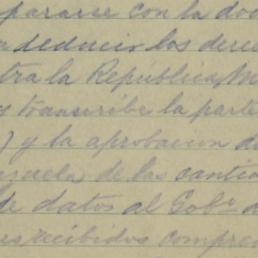 pararse con la doc
deducir los dere
tra la República, M
transcribe la parte
) y la aprobacion d
zuela, de las cantid
de datos al Gobº d
recibidos compre